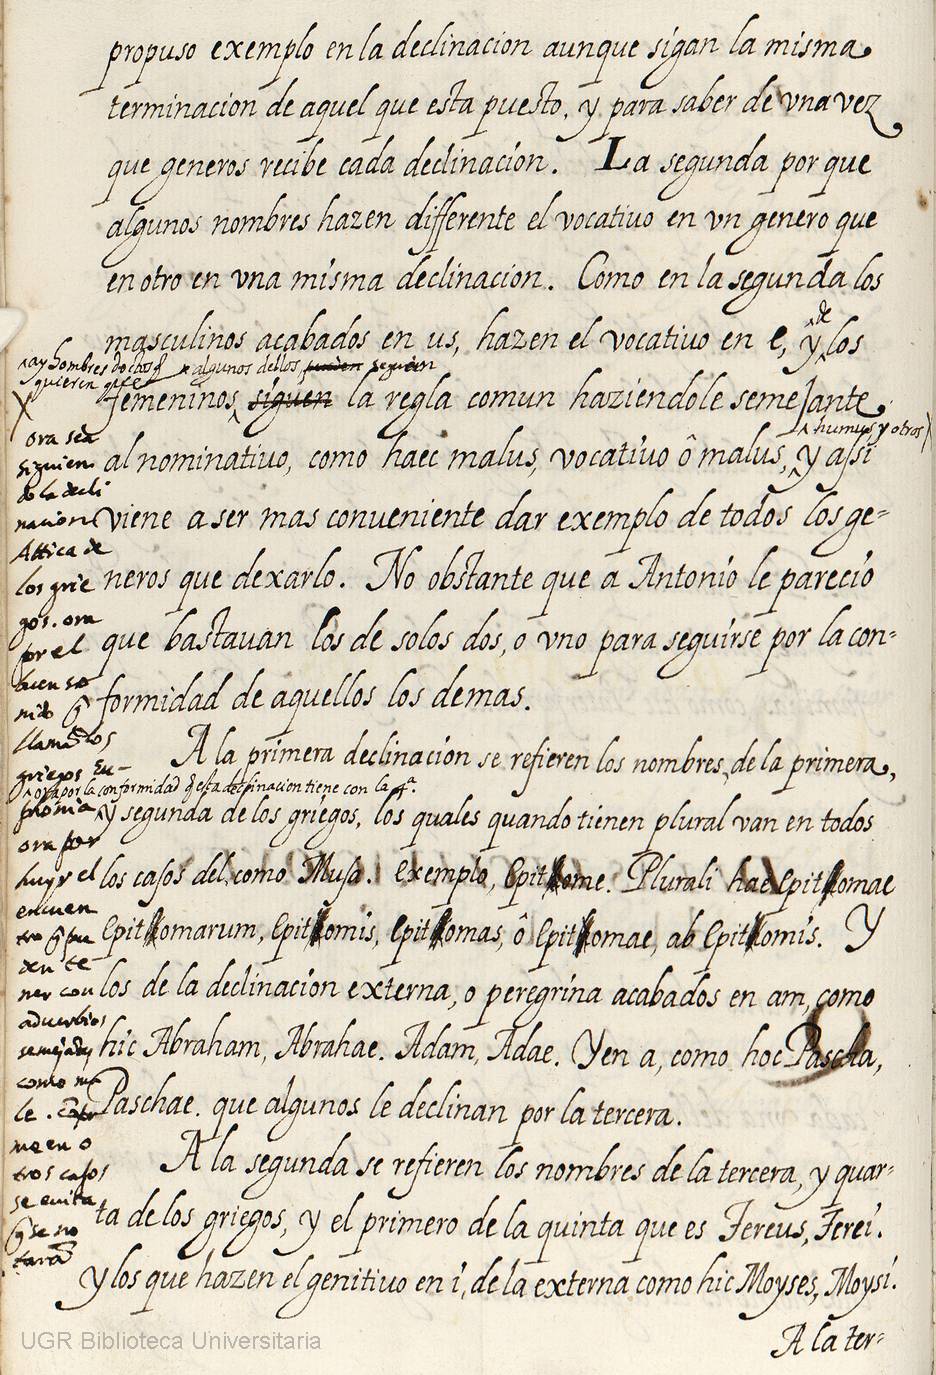 propuso exemplo en la declinacion aunque sigan la misma
terminacion de aquel que esta puesto, y para saber de vna vez
que generos recibe cada declinacion. La segunda por que
algunos nombres hazen differente el vocatiuo en vn genero que
en otro en vna misma declinacion. Como en la segunda los
masculinos acabados en us, hazen el vocatiuo en e, y de los
ay hombres doctos q̃ quieren que algunos dellos siguen
femeninos siguen la regla comun haziendole semejante
humus y otros
al nominatiuo, como haec malus, vocatiuo ô malus, y assi
viene a ser mas conueniente dar exemplo de todos los ge=
neros que dexarlo. No obstante que a Antonio le parecio
que bastauan los de solos dos, o vno para seguirse por la con=
formidad de aquellos los demas.
A la primera declinacion se refieren los nombres de la primera,
y segunda de los griegos, los quales quando tienen plural van en todos
los casos del, como Musa. Exemplo, Epitome. Plurali hae Epitomae
Epitomarum, Epitomis, Epitomas, ô Epitomae, ab Epitomis. Y
los de la declinacion externa, o peregrina acabados en am, como
hic Abraham, Abrahae. Adam, Adae. Y en a, como hoc Pascha,
Paschae. que algunos le declinan por la tercera.
A la segunda se refieren los nombres de la tercera, y quar=
ta de los griegos, y el primero de la quinta que es Tereus, Terei.
y los que hazen el genitiuo en i, de la externa como hic Moyses, Moysi.
A la ter=
ora sea
siguien
do la decli
nacion
Attica de
los grie
gos. ora
por el
buen so
nido q̃
llamã los
griegos Eu=
phonia
ora por la conformidad q̃ esta declinacion tiene con la 4ª.
ora por
huyr el
encuen
tro q̃ pu
den te
ner con
aduerbios
semejãtes
como ma
le. como
me en o
tros casos
se euita
q̃ se no
tarã
UGR Biblioteca Universitaria